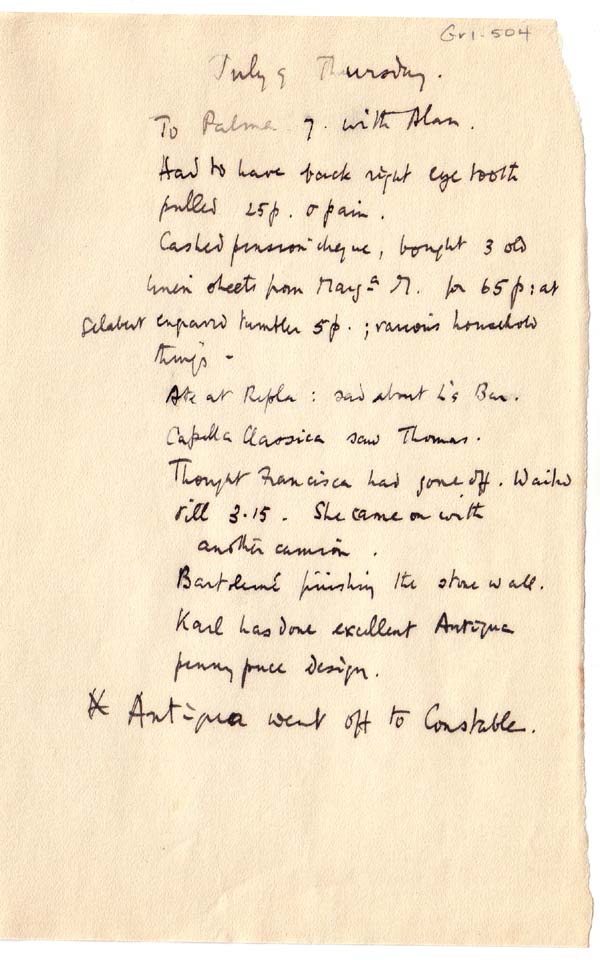 Gr1-504
July 9 Thursday.
To Palma 7. with Alan.
Had to have back right eye tooth
pulled 25p. o pain.
Cashed pension cheque, bought 3 old
linen sheets from Marg^a M. for 65p: at
Gelabert engraved tumbler 5p.; various household
things -
Ate at Repla: sad about L's Bar.
Capella Classica saw Thomas.
Thought Francisca had gone off. Waited
till 3.15. She came on with
another camion.
Bartolemé finishing the stone wall.
Karl has done excellent Antigua
penny puce design.
* Antigua went off to Constable.